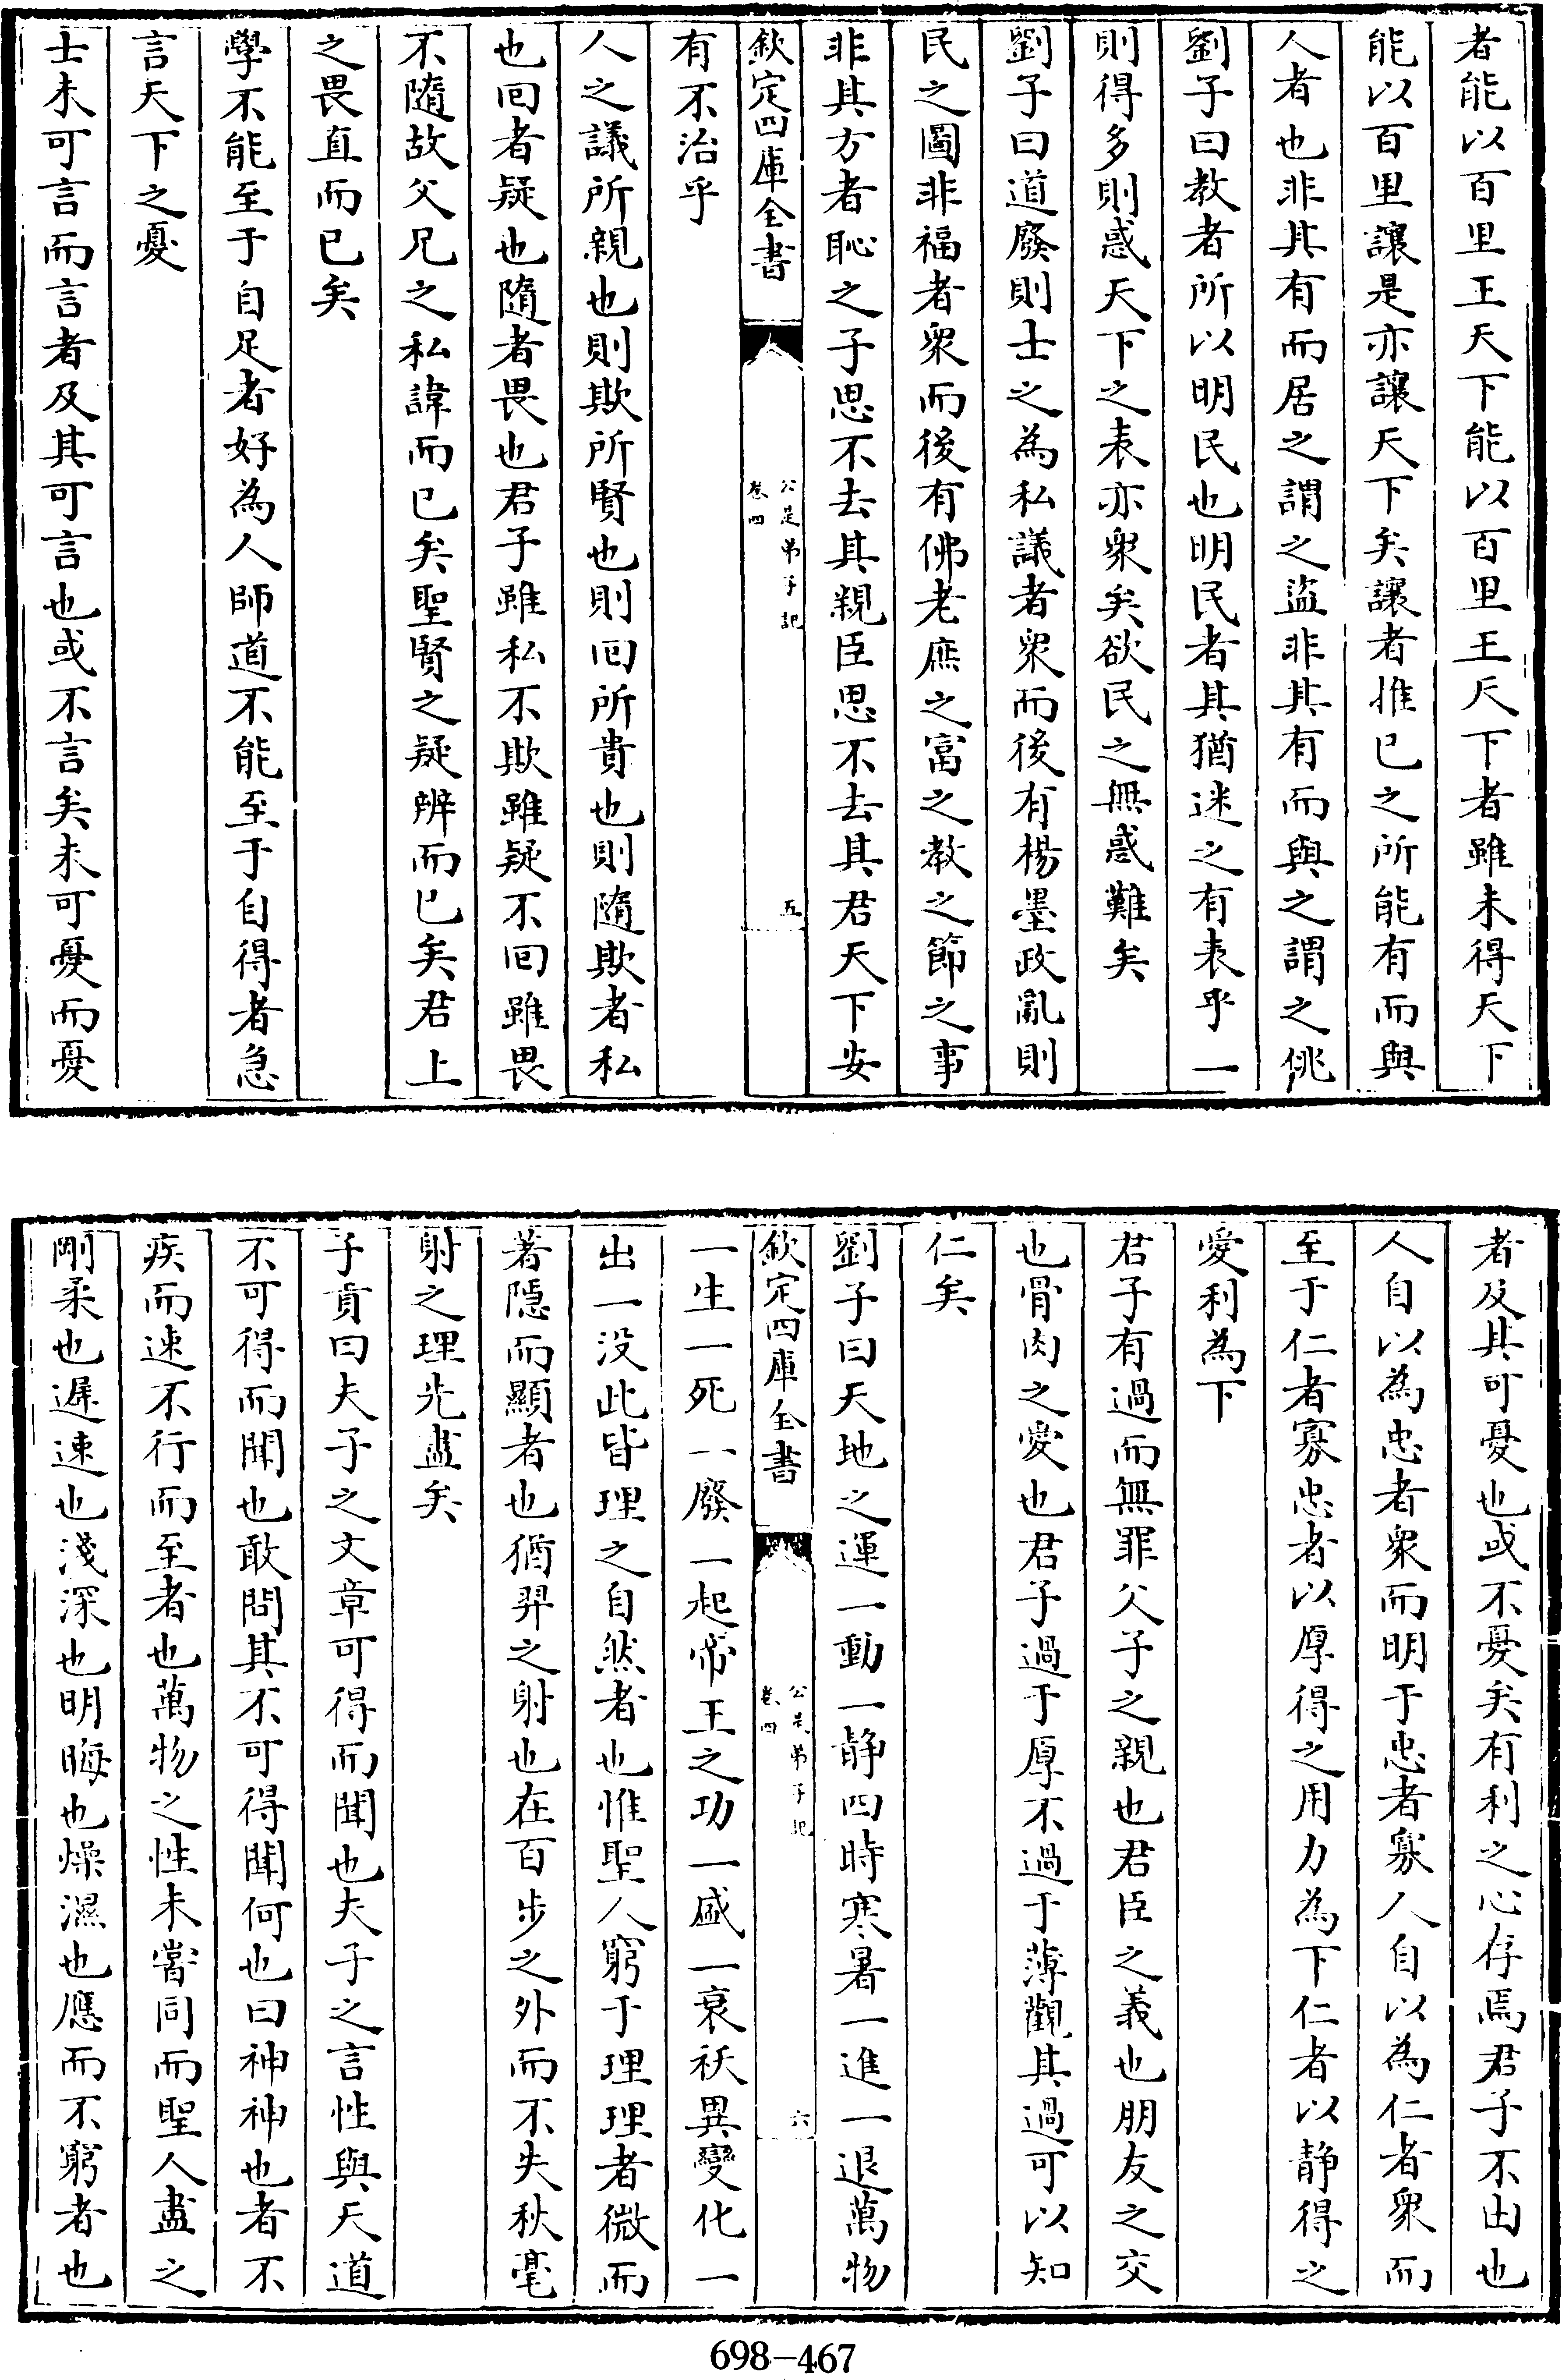 者能以百里王天下能以百里王天下者雖未得天下
能以百里讓是亦讓天下矣讓者推已之所能有而與
人者也非其有而居之謂之盜非其有而與之謂之佻
劉子曰教者所以明民也明民者其猶迷之有表乎一
則得多則惑天下之表亦衆矣欲民之無惑難矣
劉子曰道廢則士之為私議者衆而後有楊墨政亂則
民之圖非福者衆而後有佛老庶之富之教之節之事
非其方者恥之子思不去其親臣思不去其君天下安
欽定四庫全書
公是弟子記
卷四
五
有不治乎
人之議所親也則欺所賢也則囘所貴也則隨欺者私
也囘者疑也隨者畏也君子雖私不欺雖疑不囘雖畏
不隨故父兄之私諱而已矣聖賢之疑辨而已矣君上
之畏直而已矣
學不能至于自足者好為人師道不能至于自得者急
言天下之憂
士未可言而言者及其可言也或不言矣未可憂而憂
者及其可憂也或不憂矣有利之心存焉君子不由也
人自以為忠者衆而明于忠者寡人自以為仁者衆而
至于仁者寡忠者以厚得之用力為下仁者以静得之
愛利為下
君子有過而無罪父子之親也君臣之義也朋友之交
也骨肉之愛也君子過于厚不過于薄觀其過可以知
仁矣
劉子曰天地之運一動一静四時寒暑一進一退萬物
欽定四庫全書
公是弟子記
卷四
六
一生一死一廢一起帝王之功一盛一衰祅異變化一
出一没此皆理之自然者也惟聖人窮于理理者微而
著隱而顯者也猶羿之射也在百步之外而不失秋毫
射之理光盡矣
子貢曰夫子之文章可得而聞也夫子之言性與天道
不可得而聞也敢問其不可得聞何也曰神神也者不
疾而速不行而至者也萬物之性未嘗同而聖人盡之
剛柔也遲速也淺深也明晦也燥濕也應而不窮者也
698-467